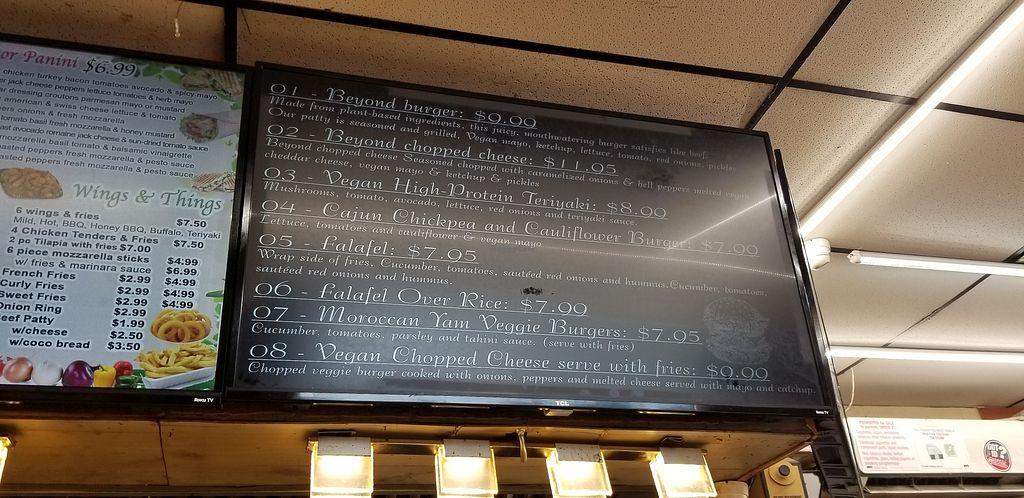 or Panini $6.99
chicken turkey bacon tomatoes avocado & spicy mayo
jack cheese peppers lettuce tomatoes & herb mayo
dressing croutons parmesan mayo or mustard
american & swiss cheese lettuce & tomato
onions & fresh mozzarella
tomato basil fresh mozzarella & honey mustard
avocado romaine jack cheese & sun-dried tomato sauce
mozzarella basil tomato & balsamic vinaigrette
peppers fresh mozzarella & pesto sauce
peppers fresh mozzarella & pesto sauce
Wings & Things
6 wings & fries $7.50
Mild, Hot, BBQ, Honey BBQ, Buffalo, Teriyaki
4 Chicken Tenders & Fries $7.50
2 pc Tilapia with fries $7.00
6 piece mozzarella sticks $4.99
w/ fries & marinara sauce $6.99
French Fries $2.99 $4.99
Curly Fries $2.99 $4.99
Sweet Fries $2.99 $4.99
Onion Ring $2.99
Beef Patty $1.99
w/cheese $2.50
w/coco bread $3.50
Roku TV
01 - Beyond burger: $9.99
Made from plant-based ingredients, this juicy, mouthwatering burger satisfies like beef.
Our patty is seasoned and grilled, Vegan mayo, ketchup, lettuce, tomato, red onions, pickles
02 - Beyond chopped cheese: $11.95
Beyond chopped cheese Seasoned chopped with caramelized onions & bell peppers melted vegan
cheddar cheese, vegan mayo & ketchup & pickles
03 - Vegan High-Protein Teriyaki: $8.00
Mushrooms, tomato, avocado, lettuce, red onions and teriyaki sauce
04 - Cajun Chickpea and Cauliflower Burger: $7.99
Lettuce, tomatoes and cauliflower & vegan mayo
05 - Falafel: $7.95
Wrap side of fries. Cucumber, tomatoes, sautéed red onions and hummus.Cucumber, tomatoes,
sautéed red onions and hummus.
06 - Falafel Over Rice: $7.99
07 - Moroccan Yam Veggie Burgers: $7.95
Cucumber, tomatoes, parsley and tahini sauce. (serve with fries)
08 - Vegan Chopped Cheese serve with fries: $9.99
Chopped veggie burger cooked with onions, peppers and melted cheese served with mayo and catchup.
TCL
Roku TV